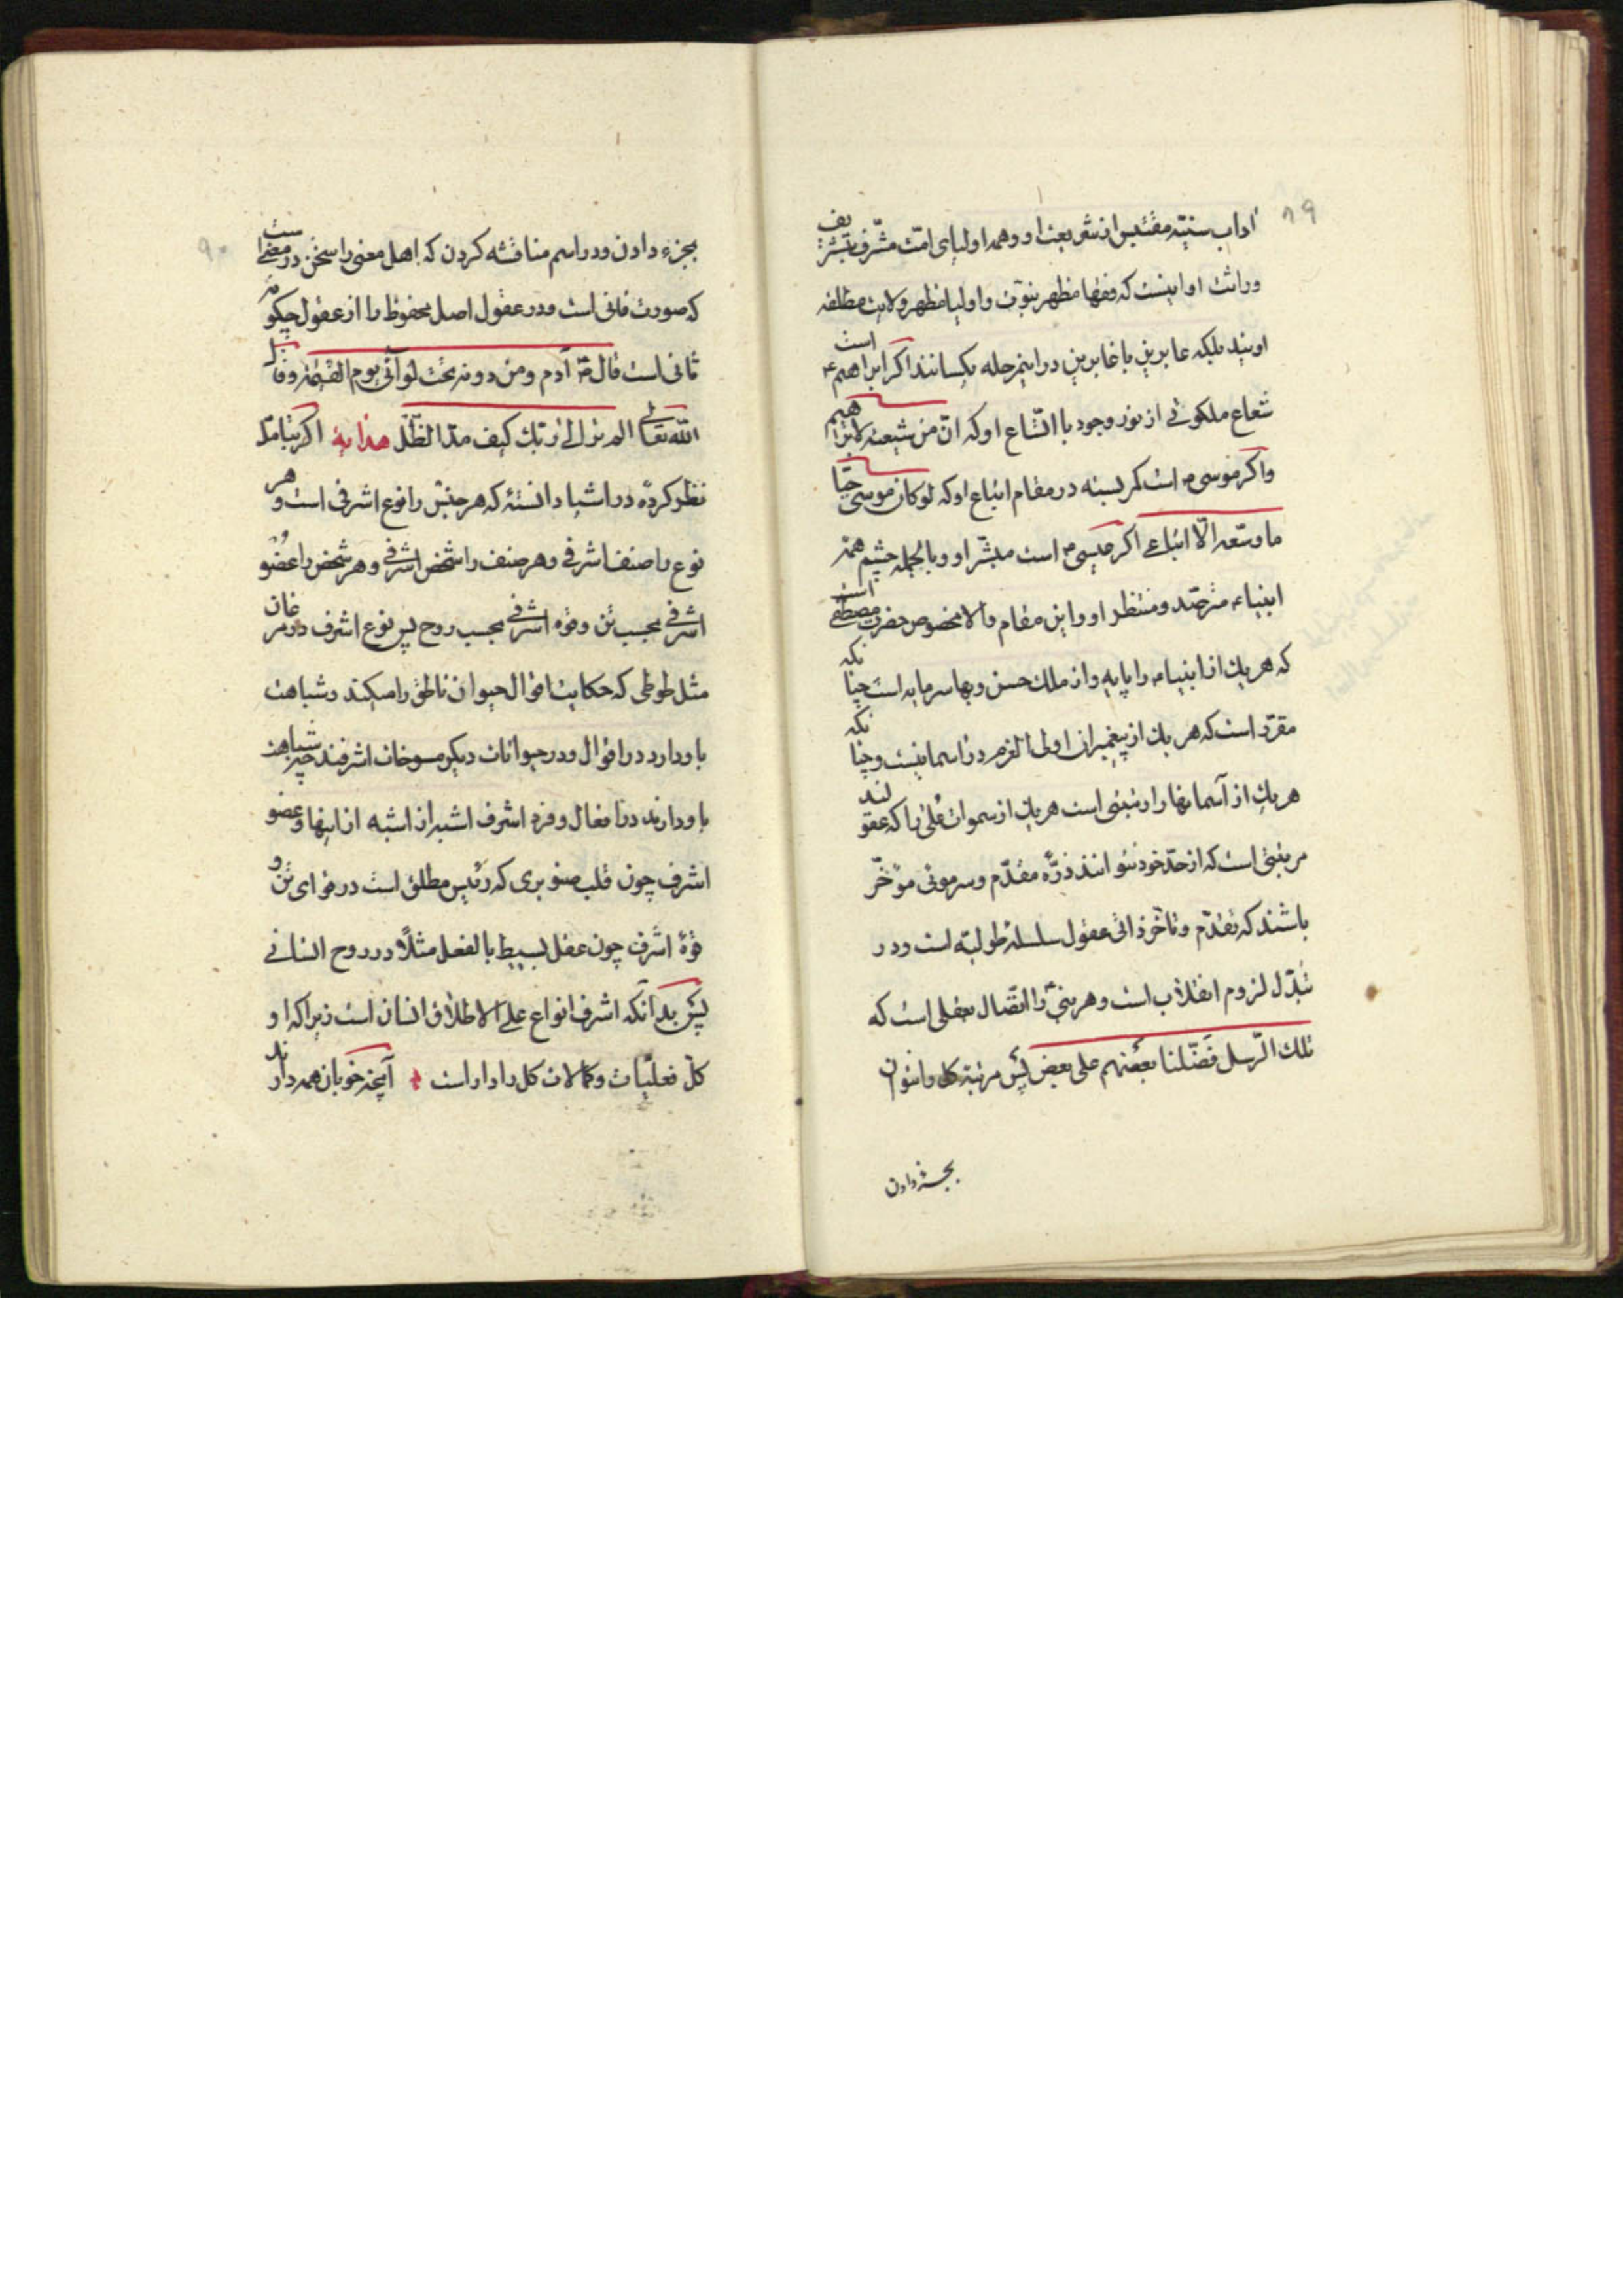 ۸۹
آداب سنیّه مقتبس از شریعت او و همه اولیای امّت مشرّف بتشریف
وراثت او اینست که فقها مظهر نبوّت و اولیا مظهر ولایت مطلقه
اویند بلکه عابرین با غابرین در اینمرحله یکسانند اگر ابراهیم ع است
شعاع ملکوتی از نور وجود با اتّساع او که انّ من شیعته لابراهیم
واگر موسی ع است کمر بسته در مقام اتباع او که لو کان موسی حیّا
ما وسعه الّا اتباعی اگر عیسی ع است مبشّر او و بالجمله چشم همه
انبیاء ع مترصّد و منتظر او و این مقام والا مخصوص حضرت مصطفی است
که هر یک از انبیا ع را پایه و از ملک حسن و بها سرمایه است چنانکه
مقرّر است که هر یک از پیغمبران اولی العزم در آسمانیست و چنانکه
هر یک از آسمانها را رتبتی است هر یک از سموات عُلی را که عقولند
مرتبتی است که از حدّ خود نتوانند ذرّه مقدّم و سر موئی موخّر
باشند که تقدّم و تأخّر ذاتی عقول سلسله طولیّه است و در
تبدّل لزوم انقلاب است و هر نبی را اتّصال بعقلی است که
تلک الرّسل فضّلنا بعضهم علی بعض پس مرتبهٔ کل را نتوان
بجزء دادن
۹۰
بجزء دادن و در اسم مناقشه کردن که اهل معنی را سخن در معنی است
که صورت فانی است و در عقول اصل محفوظ را از عقول چگونه
ثانی است قال ص آدم و من دونه تحت لوائی یوم القیمة و قال
الله تعالی الم تر الی ربّک کیف مدّ الظّلّ هدایة اگر بتامّل
نظر کردهٔ در اشیا دانستهٔ که هر جنس را نوع اشرفی است و هر
نوع را صنف اشرفی و هر صنف را شخص اشرفی و هر شخص را عضو
اشرفی بحسب تن و قوه اشرفی بحسب روح پس نوع اشرف در مرغان
مثل طوطی که حکایت اقوال حیوان ناطق را میکند و شباهت
باو دارد در اقوال و در حیوانات دیگر مسوخات اشرفند چه شباهت
باو دارند در افعال و فرد اشرف اشبه از اشبه از اینها و عضو
اشرف چون قلب صنوبری که رئیس مطلق است در قوای تن و
قوهٔ اشرف چون عقل بسیط بالفعل مثلاً در روح انسانی
پس بدانکه اشرف انواع علی الاطلاق انسان است زیرا که او
کلّ فعلیّات و کمالات کل را دار است آنچه خوبان همه دارند